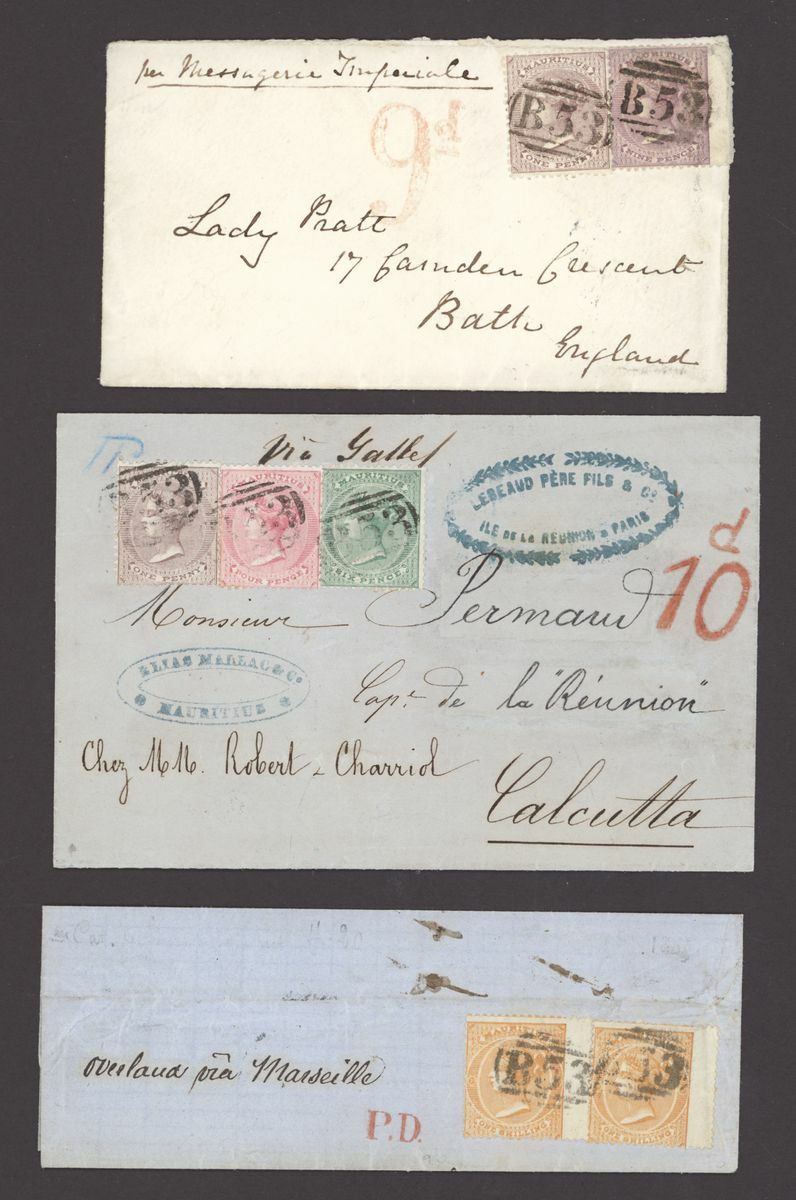 per Messagerie Imperiale
MAURITIUS
MAURITIUS
B 53
B 53
ONE PENNY
NINE PENCE
9d
Lady Pratt
17 Camden Crescent
Bath
England
via Galle
MAURITIUS
ONE PENNY
FOUR PENCE
SIX PENCE
LEBEAUD PÈRE FILS & Co
ILE DE LA RÉUNION & PARIS
10d
Monsieur Permaud
ELIAS MALLAC & Co
MAURITIUS
Cape de la "Réunion"
Chez MM. Robert & Charriol
Calcutta
overland viâ Marseille
P.D.
B 53
53
ONE SHILLING
ONE SHILLING